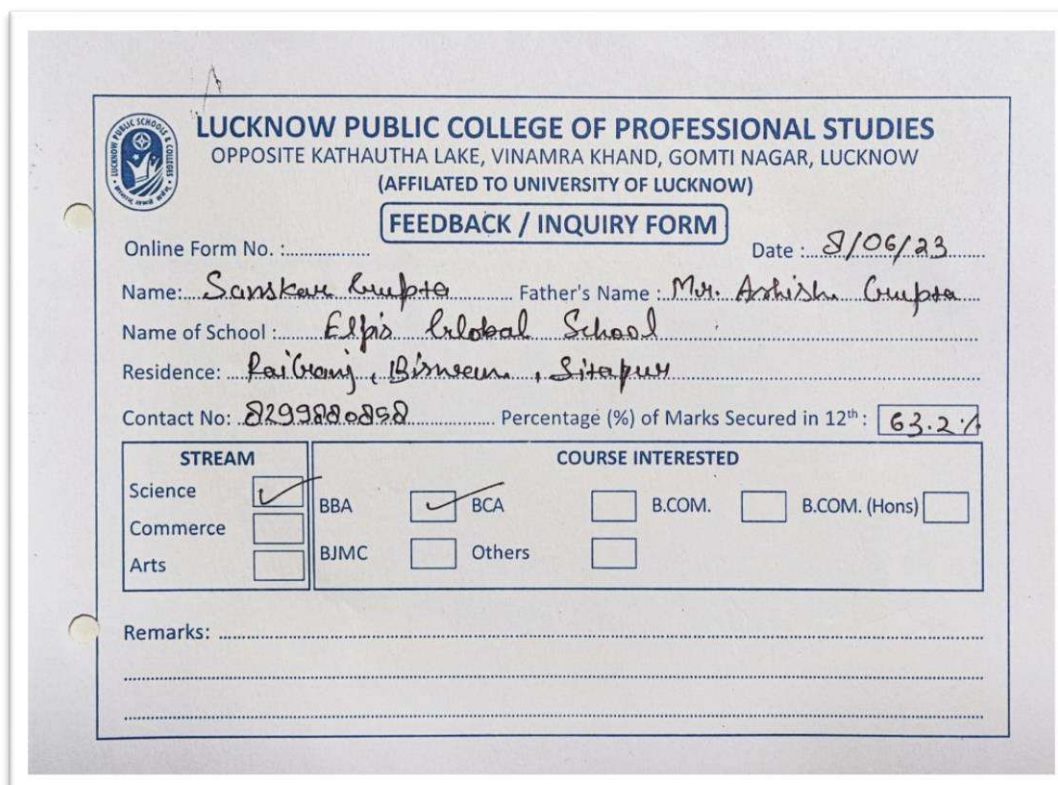 LUCKNOW PUBLIC SCHOOLS & COLLEGES
LUCKNOW PUBLIC COLLEGE OF PROFESSIONAL STUDIES
OPPOSITE KATHAUTHA LAKE, VINAMRA KHAND, GOMTI NAGAR, LUCKNOW
(AFFILATED TO UNIVERSITY OF LUCKNOW)
FEEDBACK / INQUIRY FORM
Online Form No. : Date : 8/06/23
Name: Sanskar Gupta Father's Name : Mr. Ashish Gupta
Name of School : Elpis Global School
Residence: RaiGanj, , Sitapur
Contact No: 8299880858 Percentage (%) of Marks Secured in 12th : 63.2%
STREAM COURSE INTERESTED
Science BBA BCA B.COM. B.COM. (Hons)
Commerce
Arts BJMC Others
Remarks: